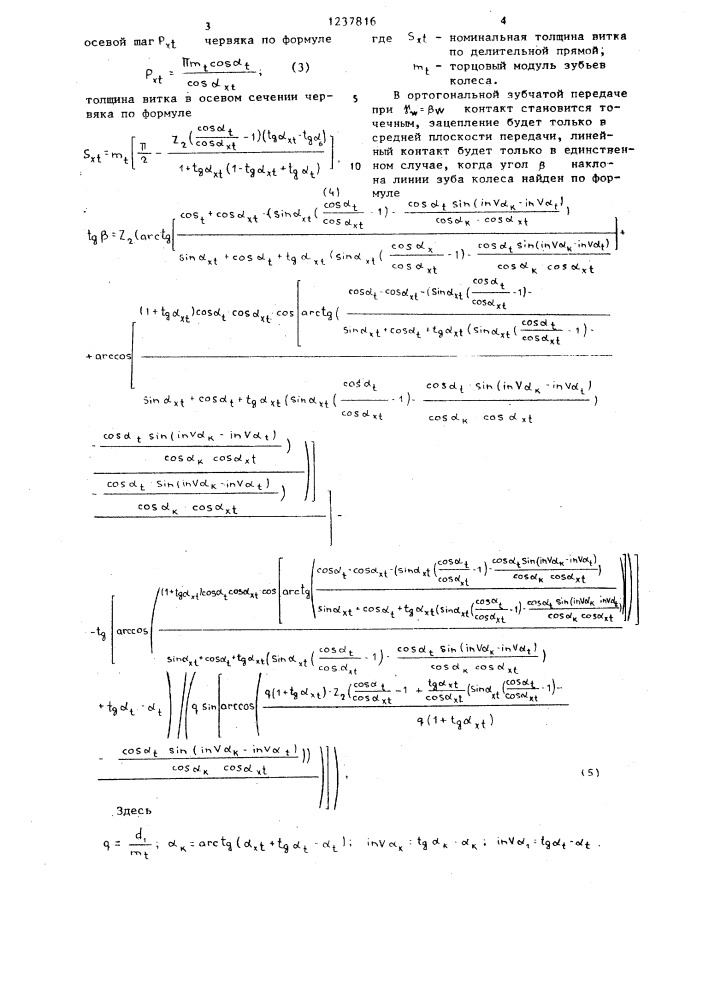 3
1237816
4
осевой шаг P_xt червяка по формуле
P_xt = Πm_t cosα_t / cos α_xt ; (3)
толщина витка в осевом сечении чер-
вяка по формуле
S_xt = m_t [ Π/2 - Z_2(cosα_t/cosα_xt - 1)(tgα_xt - tgα_t) / 1+tgα_xt(1-tgα_xt+tgα_t) ] ,
(4)
где S_xt - номинальная толщина витка
по делительной прямой;
m_t - торцовый модуль зубьев
колеса.
5
В ортогональной зубчатой передаче
при γ_w=β_w контакт становится то-
чечным, зацепление будет только в
средней плоскости передачи, линей-
ный контакт будет только в единствен-
10
ном случае, когда угол β накло-
на линии зуба колеса найден по фор-
муле
tgβ = Z_2(arctg[ cos_t+cosα_xt-(sinα_xt(cosα_t/cosα_xt -1)- cosα_t sin(inVα_к-inVα_t)/cosα_к · cosα_xt) / sinα_xt+cosα_t+tgα_xt(sinα_xt(cosα_x/cosα_xt -1)- cosα_t sin(inVα_к-inVα_t)/cosα_к cosα_xt) ]+
+arccos[ (1+tgα_xt)cosα_t cosα_xt cos[arctg( cosα_t-cosα_xt-(sinα_xt(cosα_t/cosα_xt -1)- / sinα_xt+cosα_t+tgα_xt(sinα_xt(cosα_t/cosα_xt -1)-
sinα_xt+cosα_t+tgα_xt(sinα_xt(cosα_t/cosα_xt -1)- cosα_t sin(inVα_к-inVα_t)/cosα_к cosα_xt)
- cosα_t sin(inVα_к-inVα_t)/cosα_к cosα_xt )
- cosα_t sin(inVα_к-inVα_t)/cosα_к cosα_xt ) )] ] -
-tg[arccos( (1+tgα_xt)cosα_t cosα_xt cos[arctg( cosα_t-cosα_xt-(sinα_xt(cosα_t/cosα_xt -1)- cosα_t sin(inVα_к-inVα_t)/cosα_к cosα_xt) / sinα_xt+cosα_t+tgα_xt(sinα_xt(cosα_t/cosα_xt -1)- cosα_t sin(inVα_к inVα_t)/cosα_к cosα_xt) )]
sinα_xt+cosα_t+tgα_xt(sinα_xt(cosα_t/cosα_xt -1)- cosα_t sin(inVα_к-inVα_t)/cosα_к cosα_xt) )]
+tgα_t-α_t) / (q sin[arccos( q(1+tgα_xt)-Z_2(cosα_t/cosα_xt -1 + tgα_xt/cosα_xt (sinα_xt(cosα_t/cosα_xt -1)- / q(1+tgα_xt)
- cosα_t sin(inVα_к-inVα_t)/cosα_к cosα_xt )) )]) ,
(5)
Здесь
q = d_1/m_t ; α_к = arctg(α_xt+tgα_t-α_t); inVα_к = tgα_к-α_к; inVα_t = tgα_t-α_t .